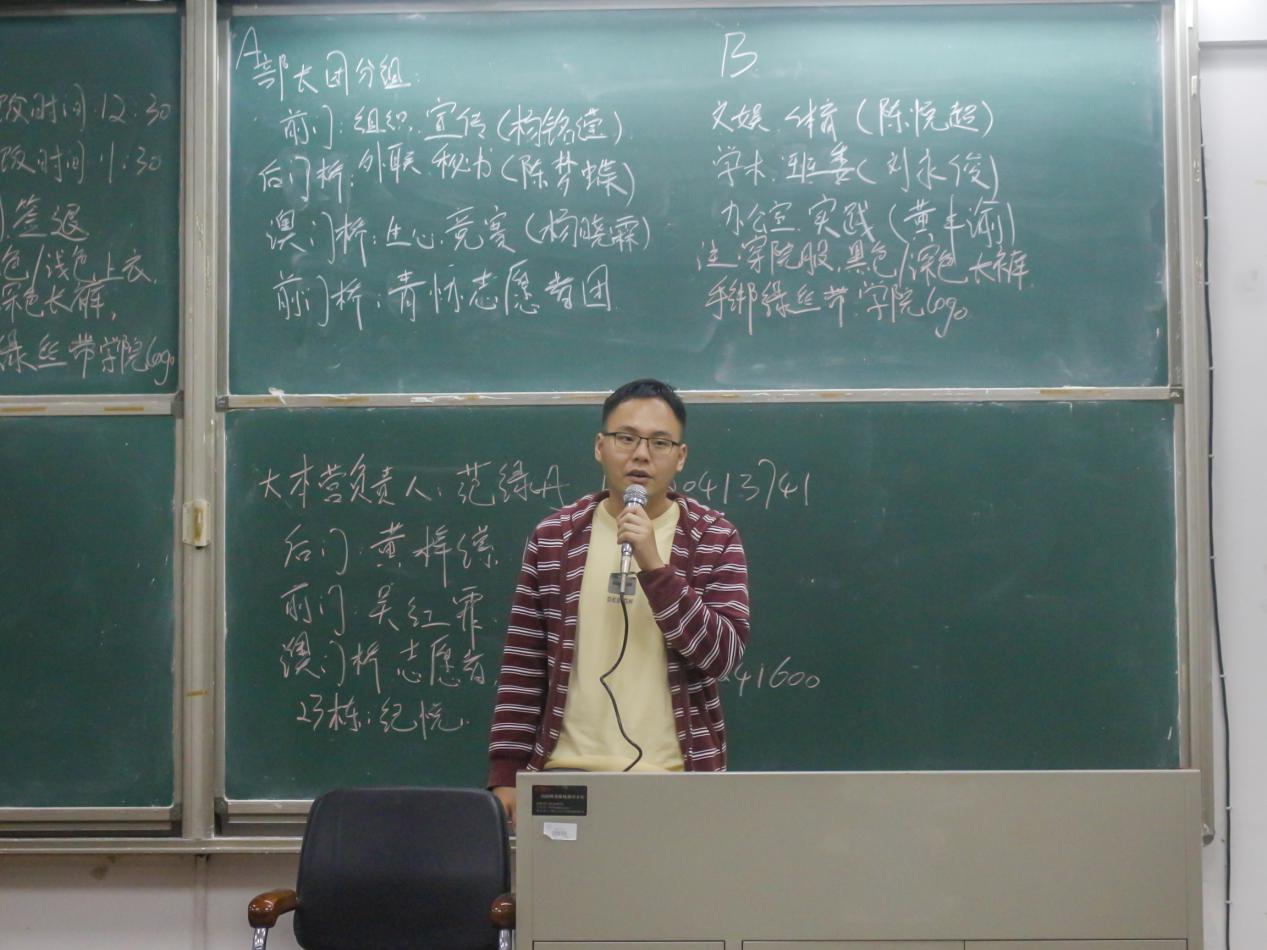 时间:12:30
时间 1:30
签退
色/浅色上衣,
深色长裤,
绿丝带学院logo
A
部长团分组:
前门:组织.宣传(杨铭莹)
后门桥:外联.秘书(陈梦蝶)
澳门桥:生心.竞赛(杨晓霖)
前门桥:青怀志愿者团
B
文娱.体育(陈悦超)
学术.班委(刘永俊)
办公室.实践(黄丰渝)
注:穿院服.黑色/深色长裤
手绑绿丝带.学院logo
大本营负责人:范绿A 0413741
后门:黄梓
前门:吴红霏.
澳门桥 志愿者 41600
23栋:纪悦.
DESIGN